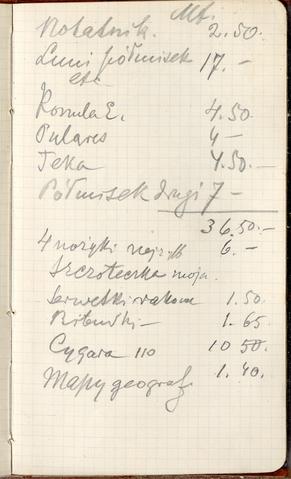 Mk.
Notatnik. 2.50.
półmisek 17.-
etc
Romula E. 4.50.
Pulares 4-
Teka 4.50.-
Półmisek drugi 7-
36.50.-
4 nożyki 6.-
Szczoteczka moja
serwetki 1.50.
1.65.
Cygara 110 10 50.
Mapy geograf. 1.40.